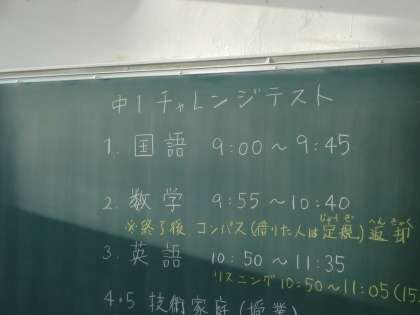 中1チャレンジテスト
1. 国語 9:00～9:45
2. 数学 9:55～10:40
※終了後、コンパス(借りた人は定規)返却
じょうぎ へんきゃく
3. 英語 10:50～11:35
リスニング10:50～11:05(15
4.5 技術家庭(授業)